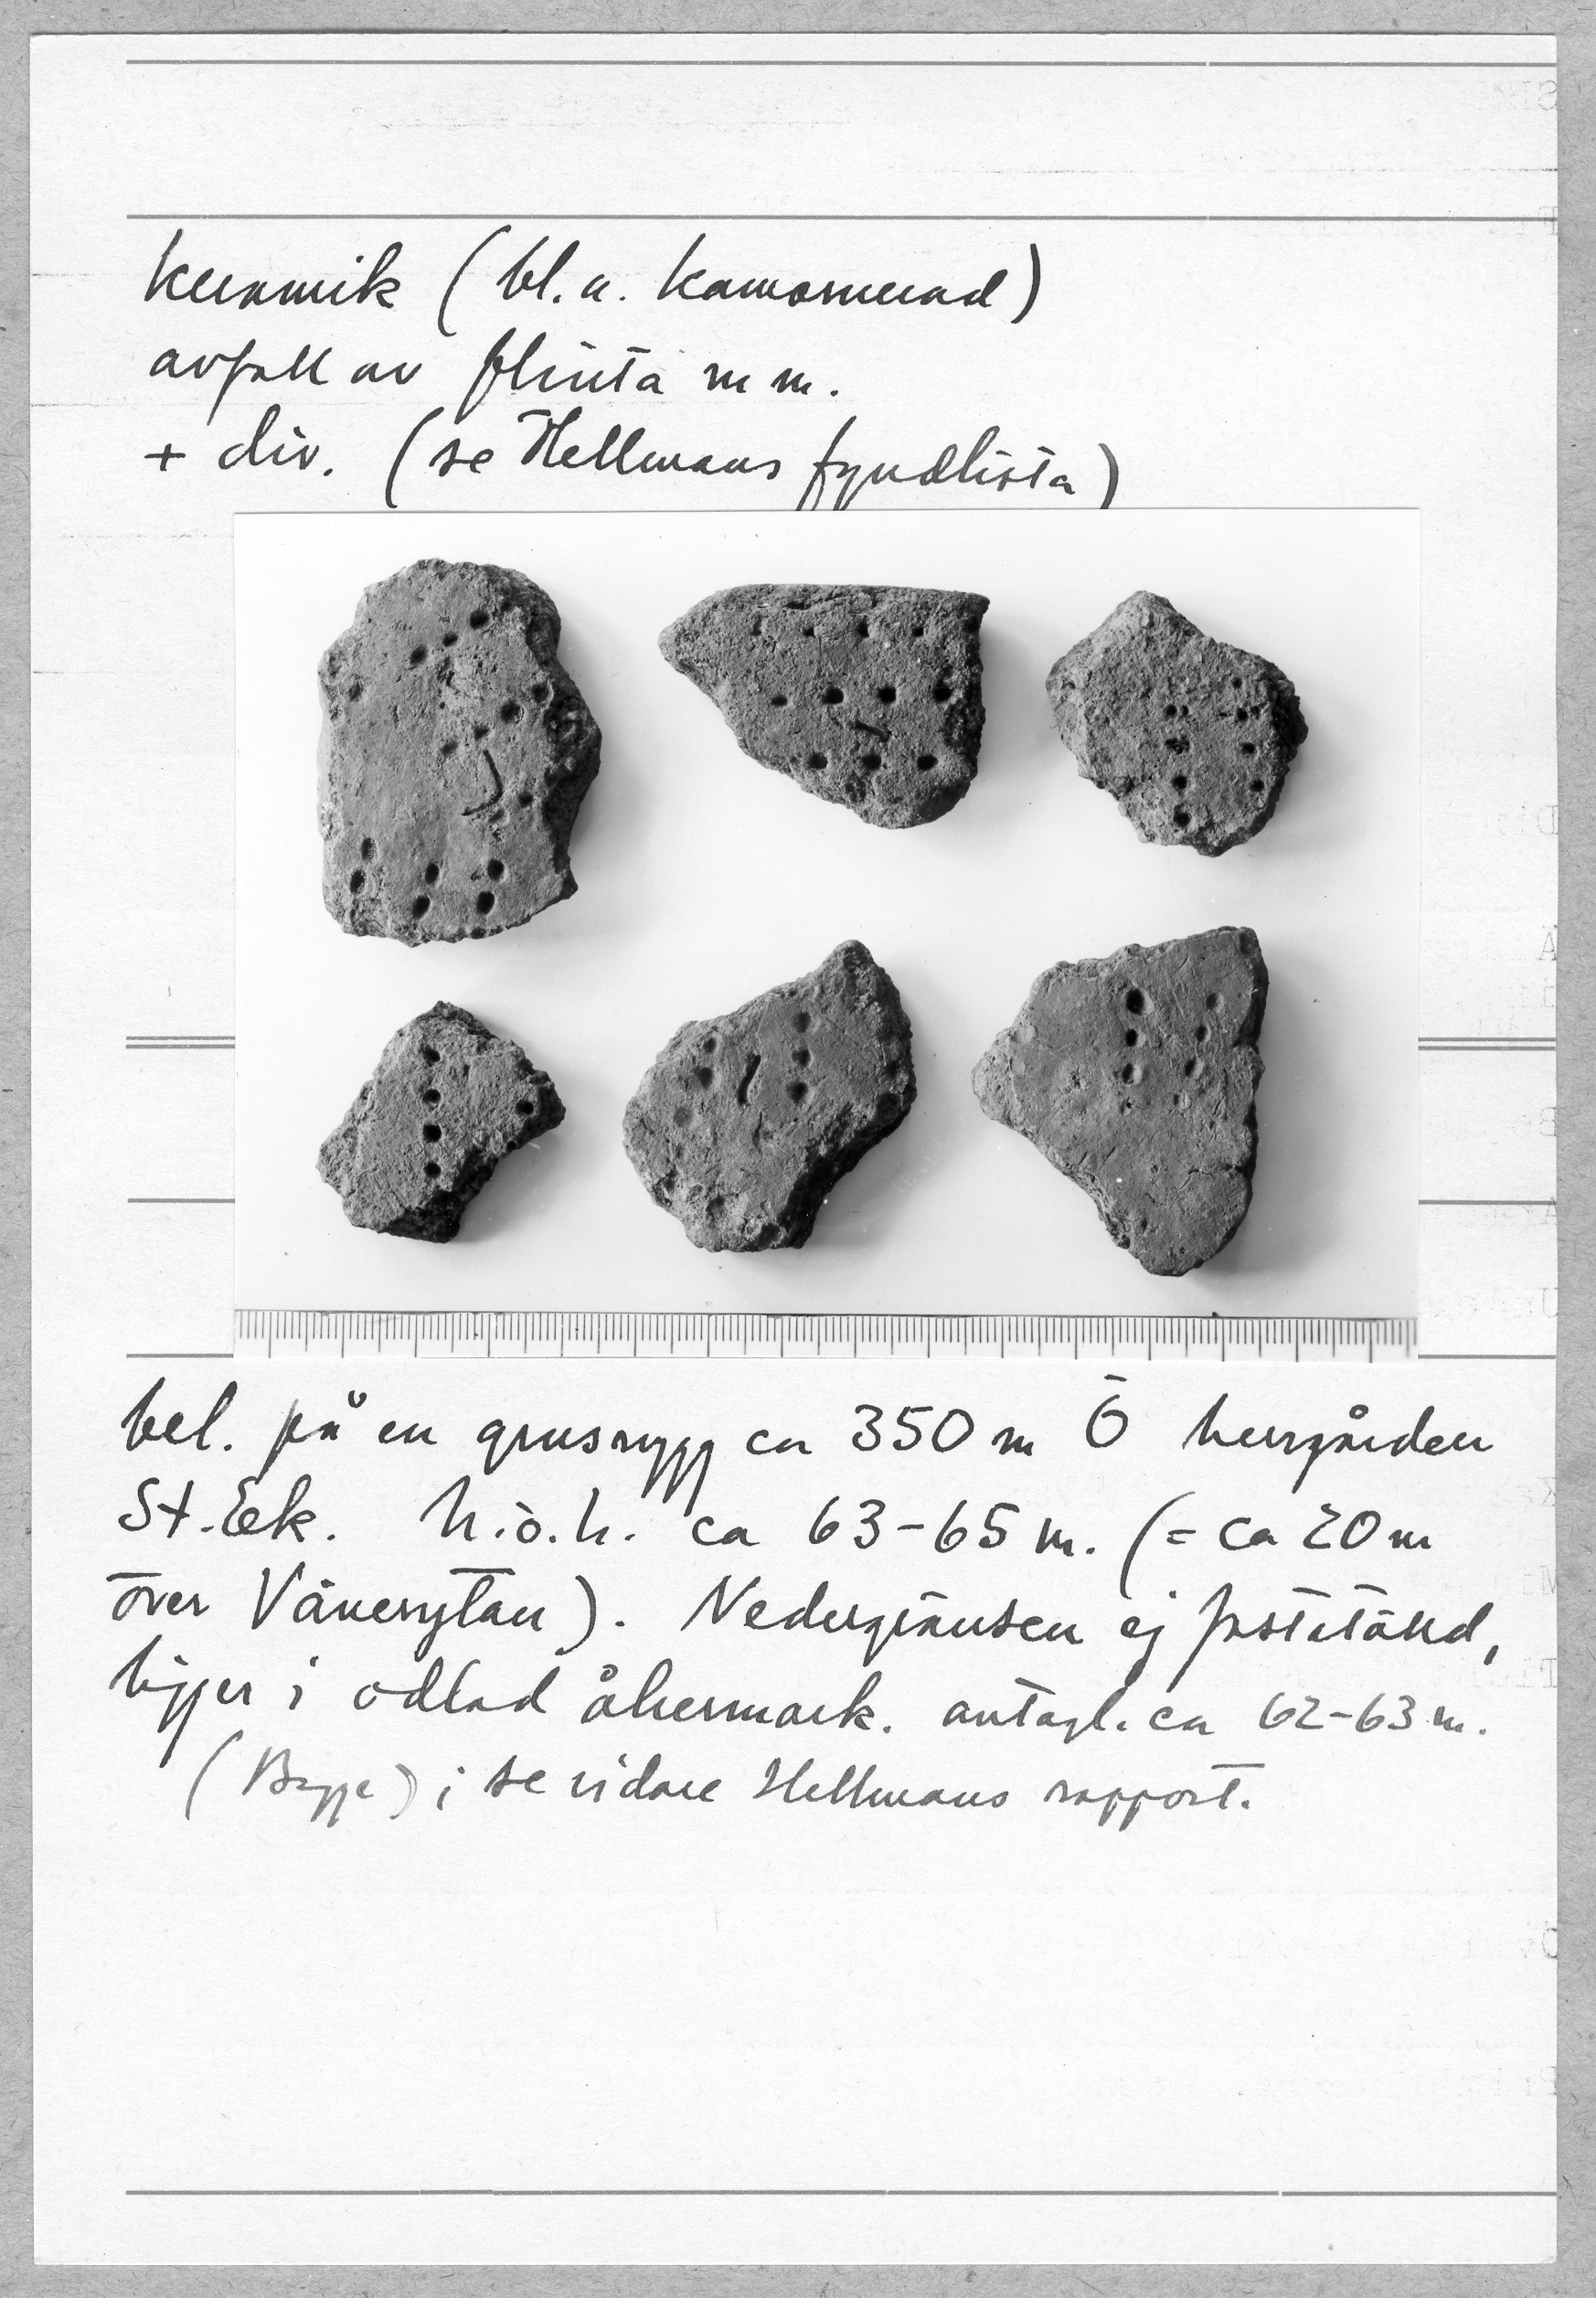 keramik (bl.a. kamornerad)
avfall av flinta m m.
+ div. (se Hellmans fyndlista)
bel. på en grusrygg ca 350 m Ö herrgården
St. Ek. h.ö.h. ca 63-65 m. (= ca 20 m
över Vänerytan). Nedergränsen ej fastställd,
ligger i odlad åkermark. antagl. ca 62-63 m.
(Bagge); se vidare Hellmans rapport.